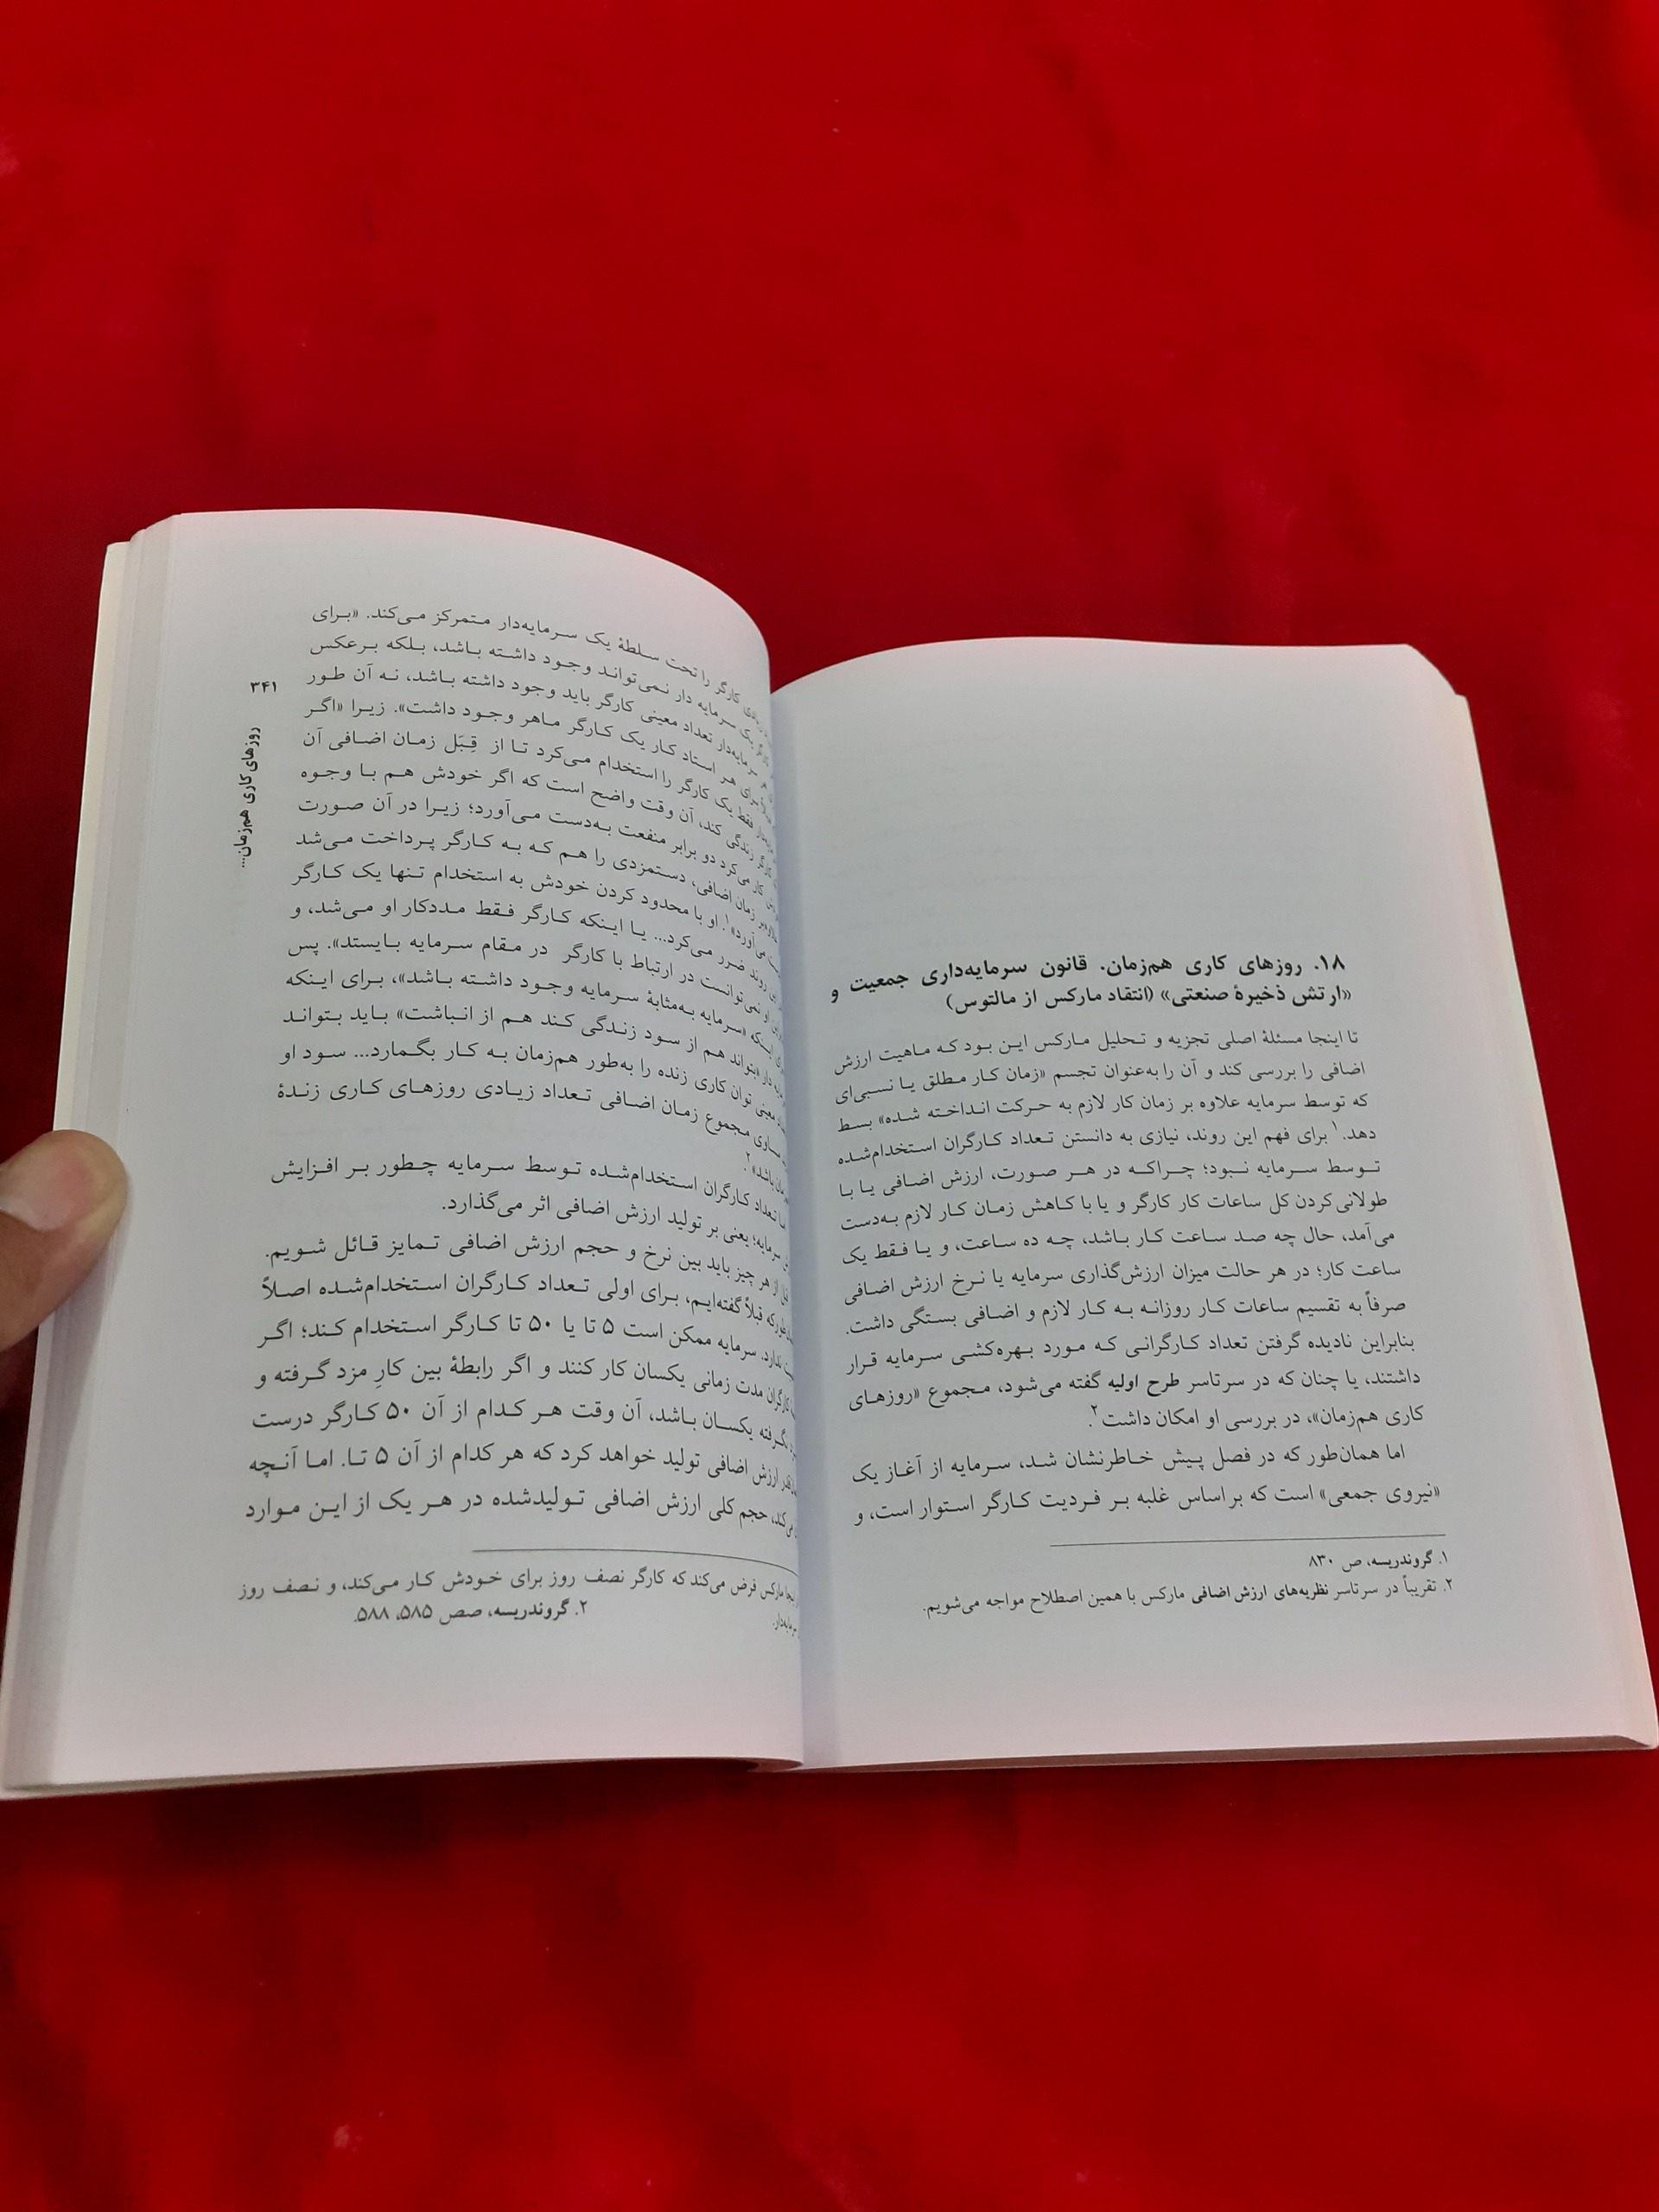 ۱۸. روزهای کاری هم‌زمان. قانون سرمایه‌داری جمعیت و
«ارتش ذخیرهٔ صنعتی» (انتقاد مارکس از مالتوس)
تا اینجا مسئلهٔ اصلی تجزیه و تحلیل مارکس این بود که ماهیت ارزش
اضافی را بررسی کند و آن را به‌عنوان تجسم «زمان کار مطلق یا نسبی‌ای
که توسط سرمایه علاوه بر زمان کار لازم به حرکت انداخته شده» بسط
دهد.۱ برای فهم این روند، نیازی به دانستن تعداد کارگران استخدام‌شده
توسط سرمایه نبود؛ چراکه در هر صورت، ارزش اضافی یا با
طولانی‌کردن کل ساعات کار کارگر و یا با کاهش زمان کار لازم به‌دست
می‌آمد، حال چه صد ساعت کار باشد، چه ده ساعت، و یا فقط یک
ساعت کار؛ در هر حالت میزان ارزش‌گذاری سرمایه یا نرخ ارزش اضافی
صرفاً به تقسیم ساعات کار روزانه به کار لازم و اضافی بستگی داشت.
بنابراین نادیده گرفتن تعداد کارگرانی که مورد بهره‌کشی سرمایه قرار
داشتند، یا چنان که در سرتاسر طرح اولیه گفته می‌شود، مجموع «روزهای
کاری هم‌زمان»، در بررسی او امکان داشت.۲
اما همان‌طور که در فصل پیش خاطرنشان شد، سرمایه از آغاز یک
«نیروی جمعی» است که بر اساس غلبه بر فردیت کارگر استوار است، و
۱. گروندریسه، ص ۸۳۰
۲. تقریباً در سرتاسر نظریه‌های ارزش اضافی مارکس با همین اصطلاح مواجه می‌شویم.
۳۴۱
روزهای کاری هم‌زمان...
کارگر را تحت سلطهٔ یک سرمایه‌دار متمرکز می‌کند. «برای
یک سرمایه دار نمی‌تواند وجود داشته باشد، بلکه برعکس
سرمایه‌دار تعداد معینی کارگر باید وجود داشته باشد، نه آن طور
برای هر استاد کار یک کارگر ماهر وجود داشت». زیرا «اگر
فقط یک کارگر را استخدام می‌کرد تا از قِبَل زمان اضافی آن
کارگر زندگی کند، آن وقت واضح است که اگر خودش هم با وجوه
کار می‌کرد دو برابر منفعت به‌دست می‌آورد؛ زیرا در آن صورت
زمان اضافی، دستمزدی را هم که به کارگر پرداخت می‌شد
می‌آورد»۱. او با محدود کردن خودش به استخدام تنها یک کارگر
روند ضرر می‌کرد... یا اینکه کارگر فقط مددکار او می‌شد، و
او نمی‌توانست در ارتباط با کارگر در مقام سرمایه بایستد». پس
اینکه «سرمایه به‌مثابهٔ سرمایه وجود داشته باشد»، برای اینکه
دار «بتواند هم از سود زندگی کند هم از انباشت» باید بتواند
معینی توان کاری زنده را به‌طور هم‌زمان به کار بگمارد... سود او
مساوی مجموع زمان اضافی تعداد زیادی روزهای کاری زندهٔ
باشد»۲.
تعداد کارگران استخدام‌شده توسط سرمایه چطور بر افزایش
سرمایه؛ یعنی بر تولید ارزش اضافی اثر می‌گذارد.
از هر چیز باید بین نرخ و حجم ارزش اضافی تمایز قائل شویم.
قبلاً گفته‌ایم، برای اولی تعداد کارگران استخدام‌شده اصلاً
ندارد. سرمایه ممکن است ۵ تا یا ۵۰ تا کارگر استخدام کند؛ اگر
کارگران مدت زمانی یکسان کار کنند و اگر رابطهٔ بین کارِ مزد گرفته و
نگرفته یکسان باشد، آن وقت هر کدام از آن ۵۰ کارگر درست
ارزش اضافی تولید خواهد کرد که هر کدام از آن ۵ تا. اما آنچه
می‌کند، حجم کلی ارزش اضافی تولیدشده در هر یک از این موارد
اینجا مارکس فرض می‌کند که کارگر نصف روز برای خودش کار می‌کند، و نصف روز
سرمایه‌دار.
۲. گروندریسه، صص ۵۸۵، ۵۸۸.